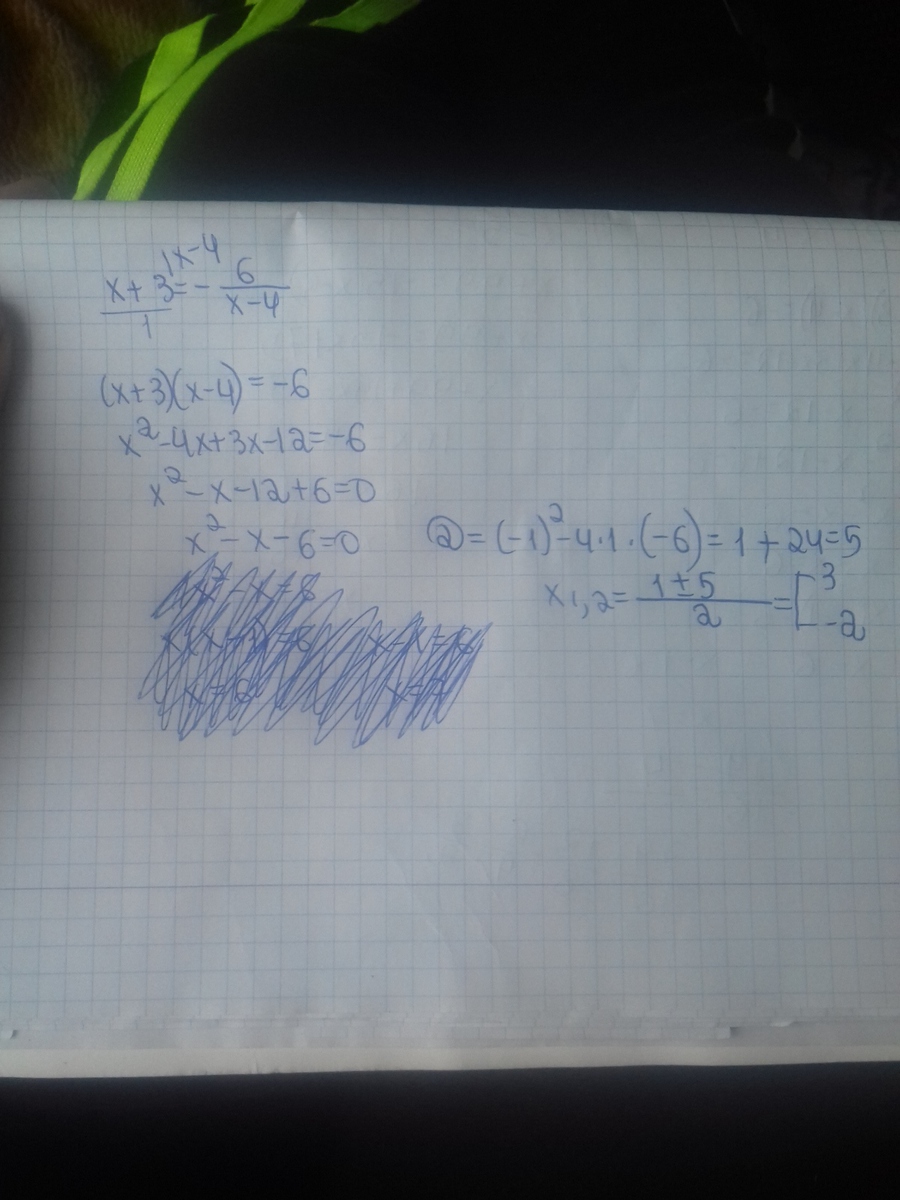 x-4
x+3/1 = - 6/x-4
(x+3)(x-4) = -6
x²-4x+3x-12=-6
x²-x-12+6=0
x²-x-6=0
D=(-1)²-4·1·(-6)=1+24=5
x1,2= 1±5/2 =[3 -2